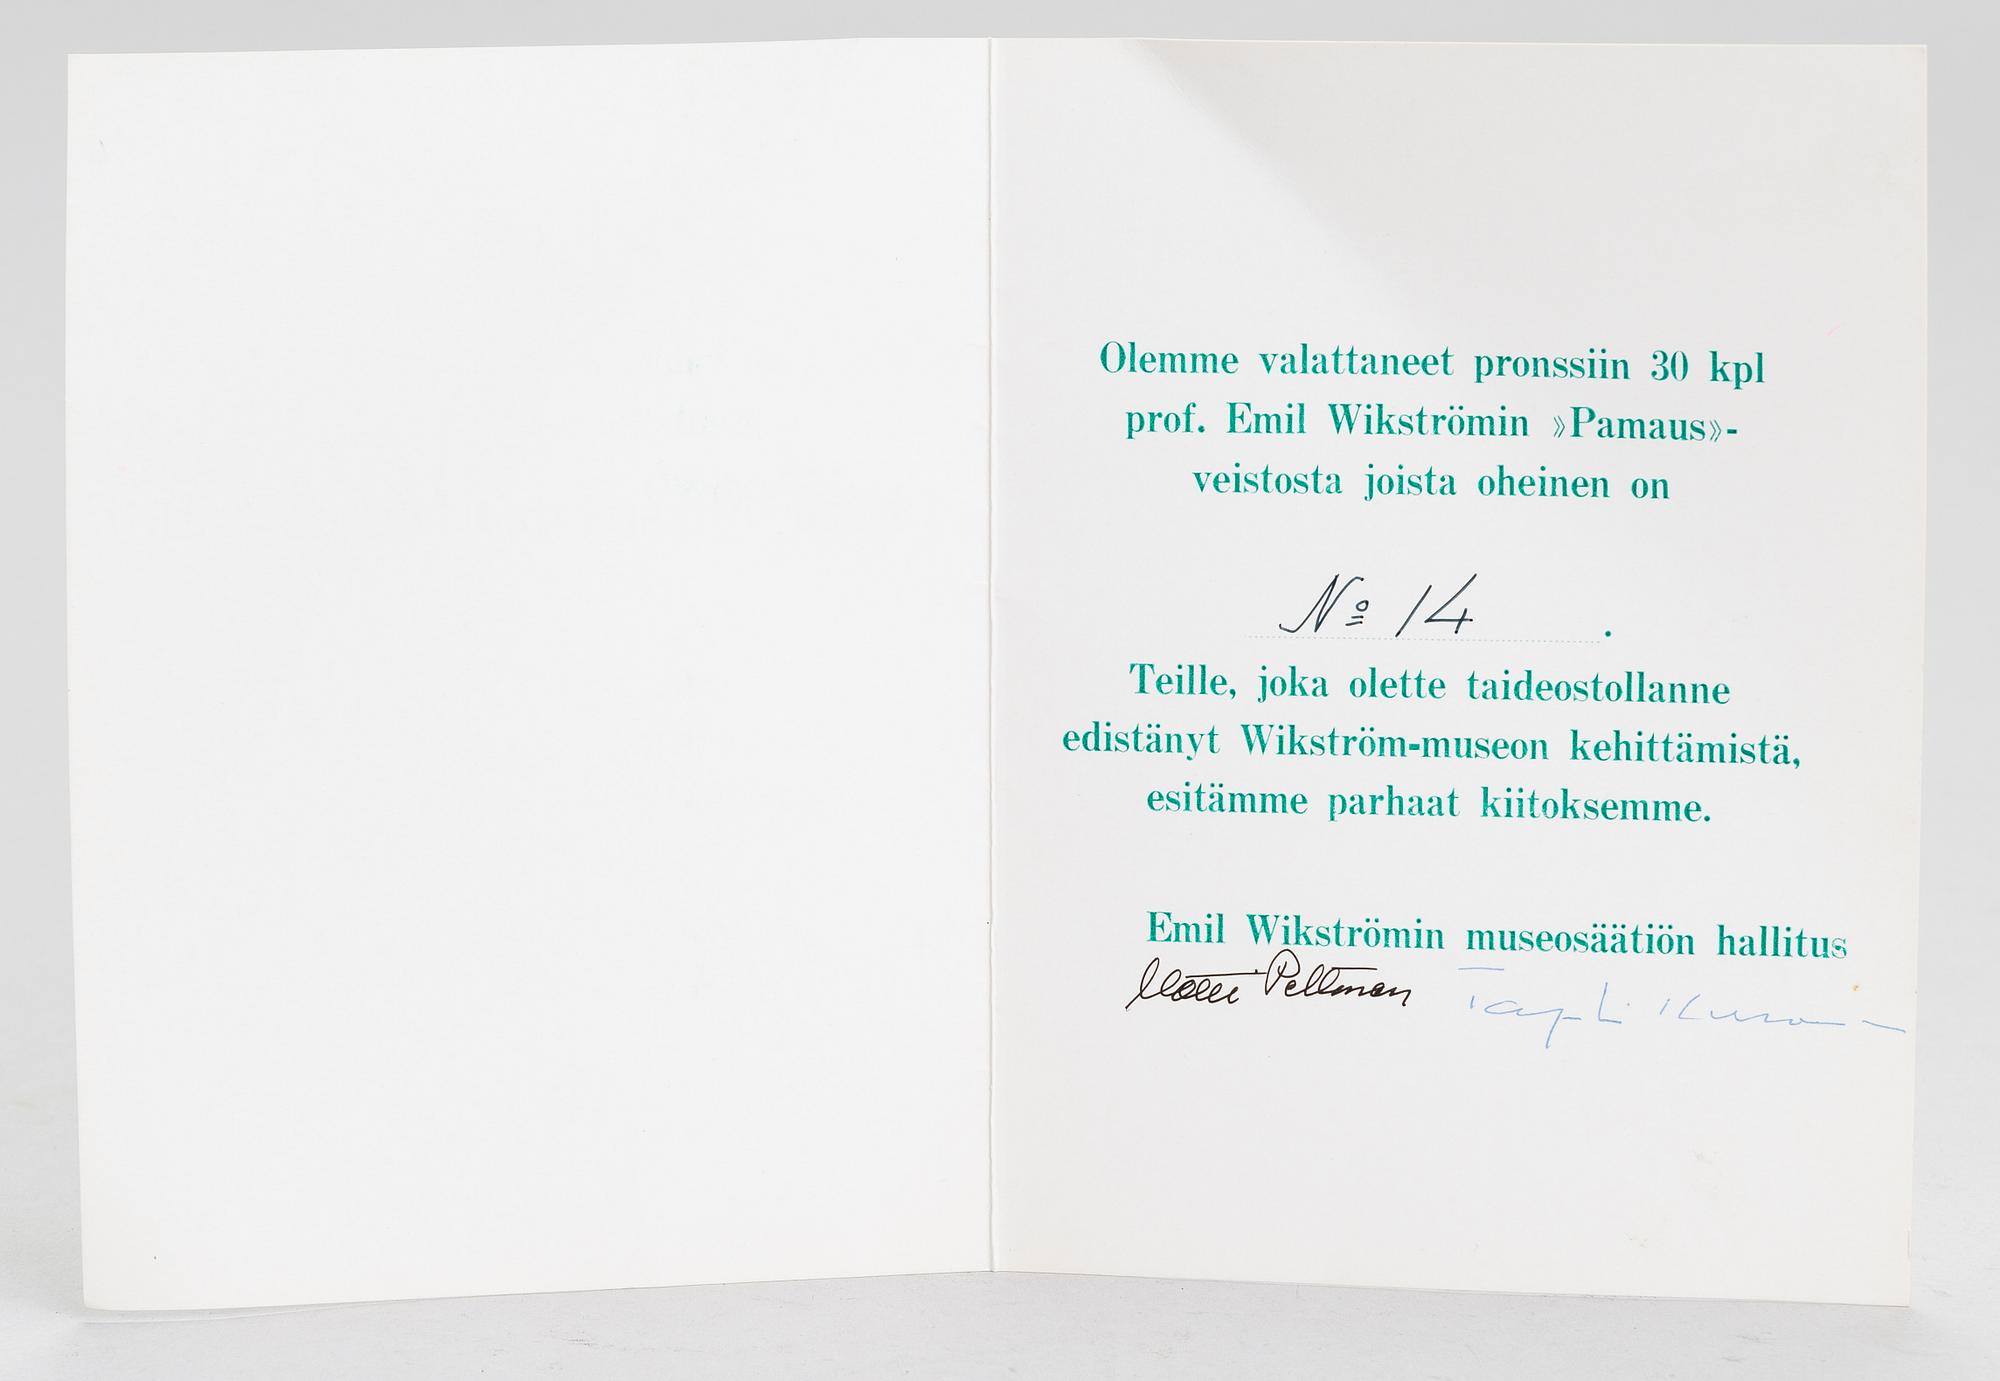 Olemme valattaneet pronssiin 30 kpl
prof. Emil Wikströmin »Pamaus»-
veistosta joista oheinen on
Nº 14 .
Teille, joka olette taideostollanne
edistänyt Wikström-museon kehittämistä,
esitämme parhaat kiitoksemme.
Emil Wikströmin museosäätiön hallitus